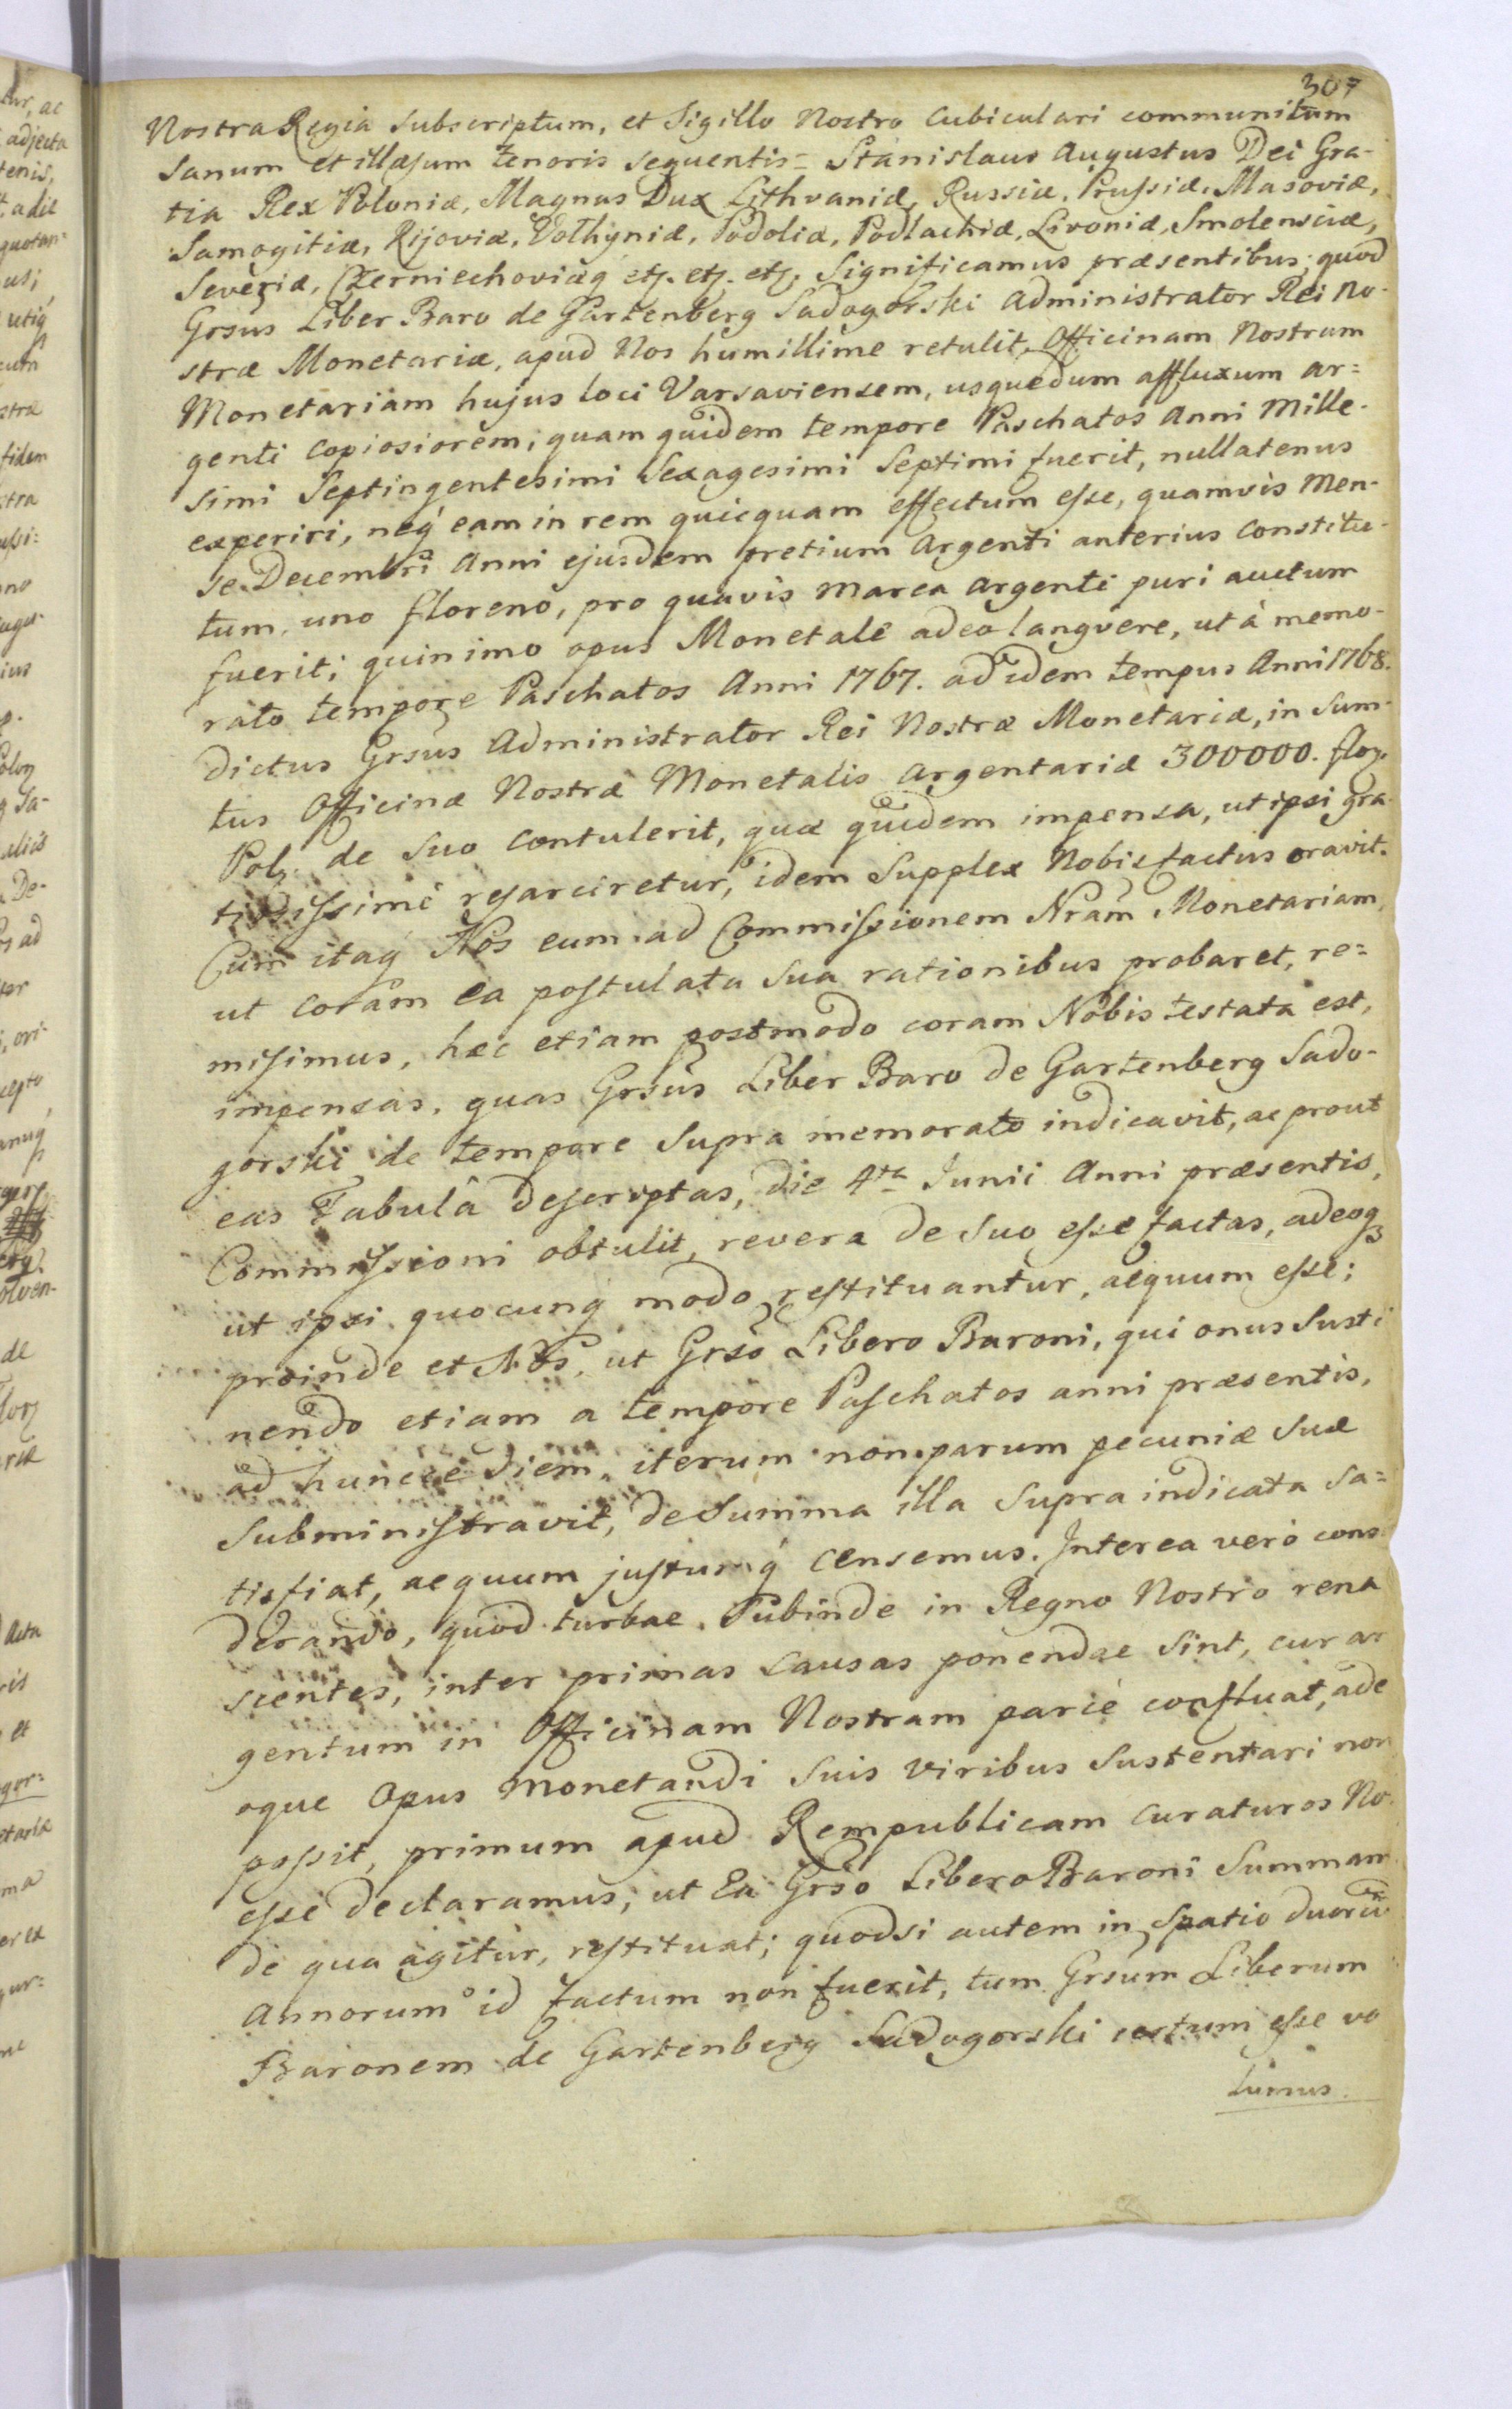 307
Nostra Regia subscriptum, et Sigillo Nostro Cubiculari communitum
Sanum et illæsum tenoris sequentis = Stanislaus Augustus Dei Gra-
tia Rex Poloniæ, Magnus Dux Lithvaniæ, Russiæ, Prussiæ, Masoviæ,
Samogitiæ, Kijoviæ, Volhyniæ, Podoliæ, Podlachiæ, Livoniæ, Smolensciæ,
Severiæ, Czerniechoviæq etc. etc. etc. Significamus præsentibus; quod
Grsus Liber Baro de Gartenberg Sadogorski Administrator Rei No-
stræ Monetariæ, apud Nos humillime retulit, Officinam Nostram
Monetariam hujus loci Varsaviensem, usquedum affluxum ar=
genti copiosiorem, quam quidem tempore Paschatos Anni Mille-
simi Septingentesimi Sexagesimi Septimi fuerit, nullatenus
experiri, neq́ eam in rem quicquam effectum esse, quamvis Men-
se Decembri Anni ejusdem pretium Argenti anterius constitu-
tum, uno floreno, pro quavis marca argenti puri auctum
fuerit; quinimo opus Monetale adeo langvere, ut à memo-
rato tempore Paschatos Anni 1767. ad idem tempus Anni 1768.
dictus Grsus Administrator Rei Nostræ Monetariæ, in Sum-
tus Officinæ Nostræ Monetalis Argentariæ 300000. flor.
Pol. de Suo contulerit, quæ quidem impensa, ut ipsi gra-
tiosissimè resarciretur, idem Supplex Nobis factus oravit.
Cum itaq́ Nos eum ad Commissionem Nram Monetariam,
ut coram ea postulata sua rationibus probaret, re=
misimus, hæc etiam postmodo coram Nobis testata est,
impensas, quas Grsus Liber Baro de Gartenberg Sado-
gorski de tempore supra memorato indicavit, ac prout
eas Tabulâ descriptas, die 4ta Junii Anni præsentis,
Commissioni obtulit, revera de Suo esse factas, adeoq
ut ipsi quocunq́ modo restituantur, aequum esse;
proinde et Nos, ut Grso Libero Baroni, qui onus Susti
nendo etiam a tempore Paschatos anni præsentis,
ad huncce diem, iterum non parum pecuniæ suæ
Subministravit, de Summa illa Supra indicata Sa=
tisfiat, aequum justumq́ censemus. Interea verò consi
derando, quod turbae, Subinde in Regno Nostro rena
scentes, inter primas causas ponendae sint, cur ar
gentum in Officinam Nostram parcè confluat, ade
oque Opus Monetandi Suis viribus Sustentari non
possit, primum apud Rempublicam curaturos No-
esse declaramus, ut Ea Grso Libero Baroni Summam
de qua agitur, restituat; quodsi autem in spatio duorũ
Annorum id factum non fuerit, tum Grsum Liberum
Baronem de Gartenberg Sadogorski certum esse vo
lumus